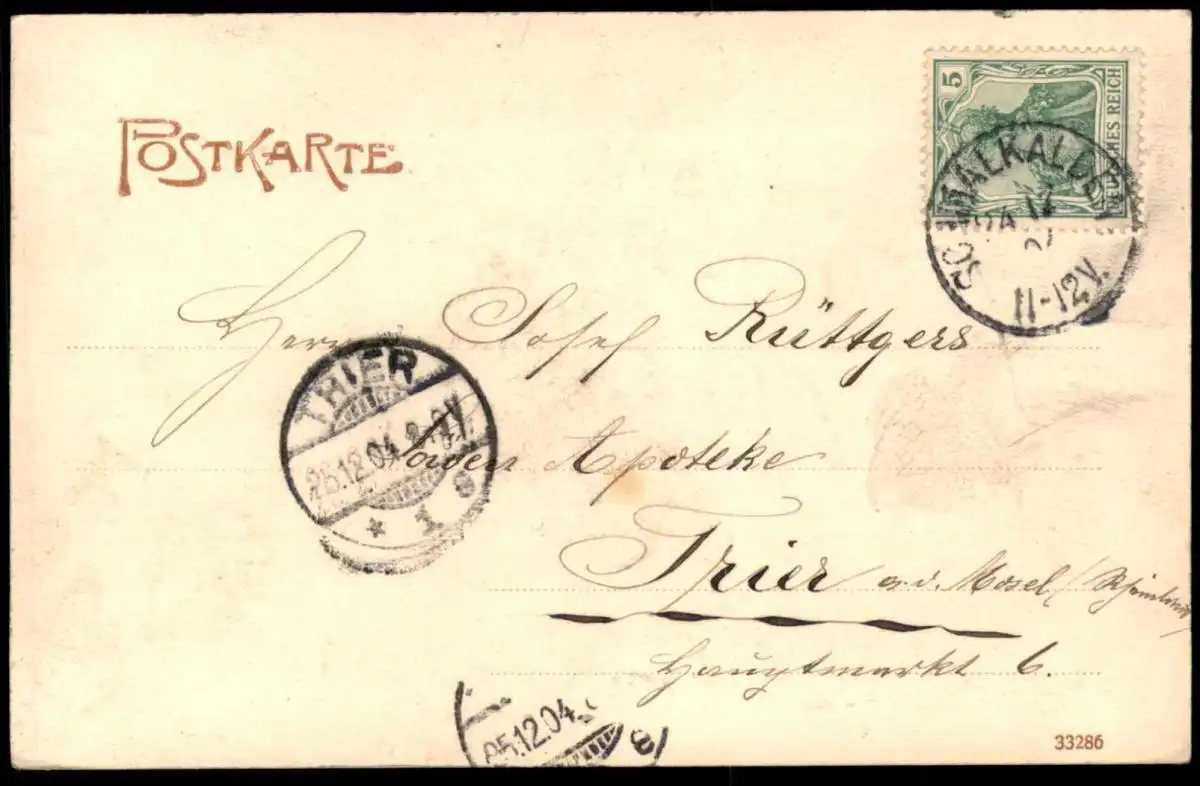 POSTKARTE
5
DEUTSCHES REICH
SCHMALKALDEN
24 12
11-12V.
Herrn Josef Rüttgers
TRIER
25.12.04. 8-9V.
* 1 e
Löwen Apoteke
Trier a. d. Mosel / Rheinland
Hauptmarkt 6.
25.12.04.
e
33286